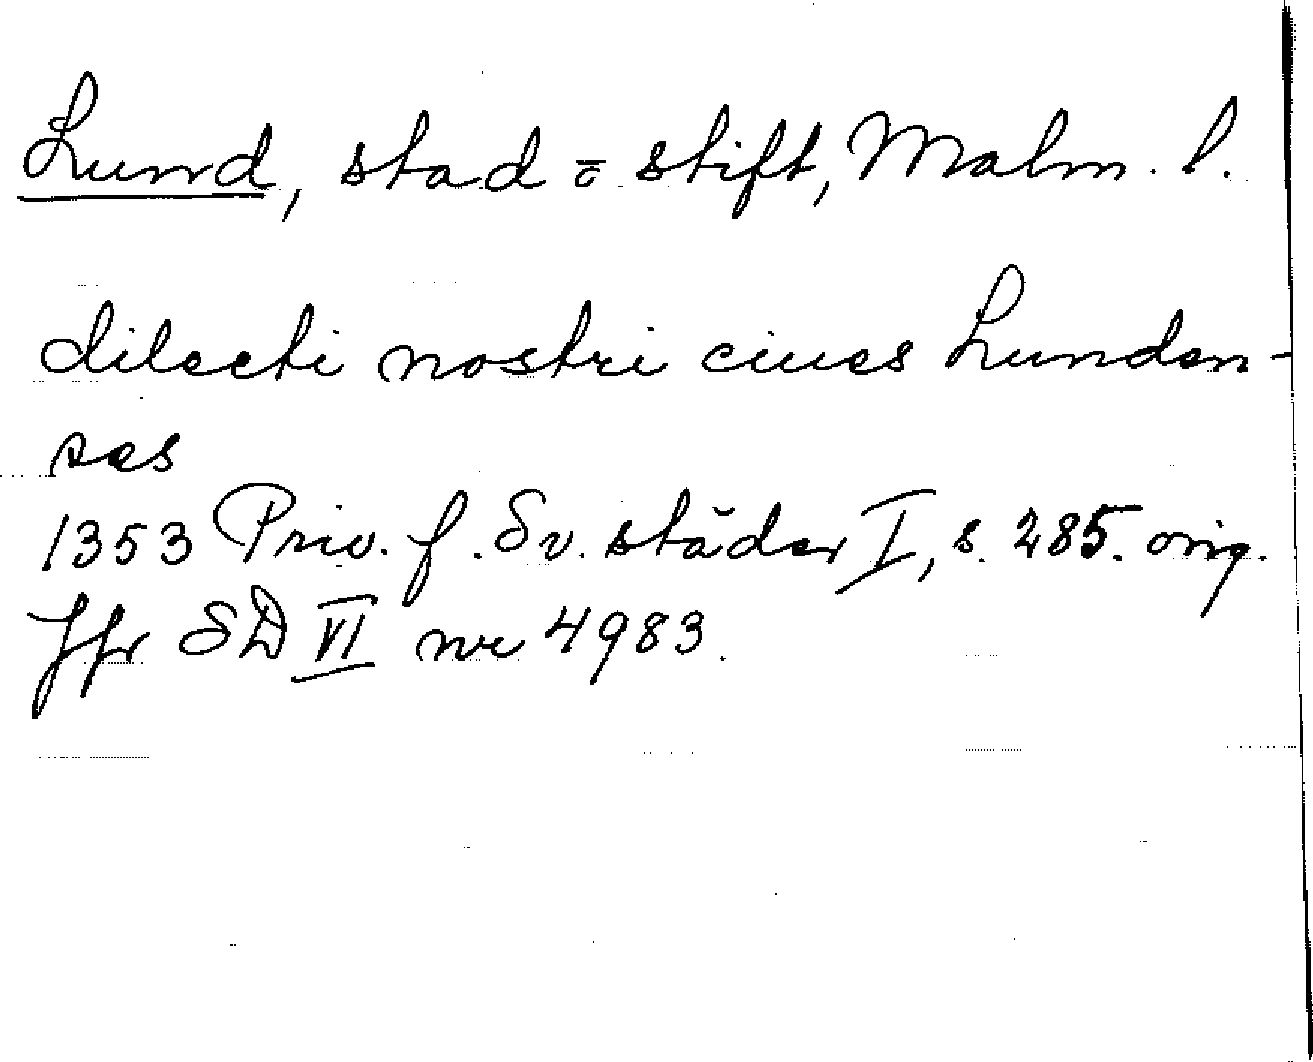 Lund, stad o stift, Malm. l.
dilecti nostri ciues Lunden-
ses
1353 Priv. f. Sv. städer I, s. 285. orig.
Jfr SD VI nr 4983.